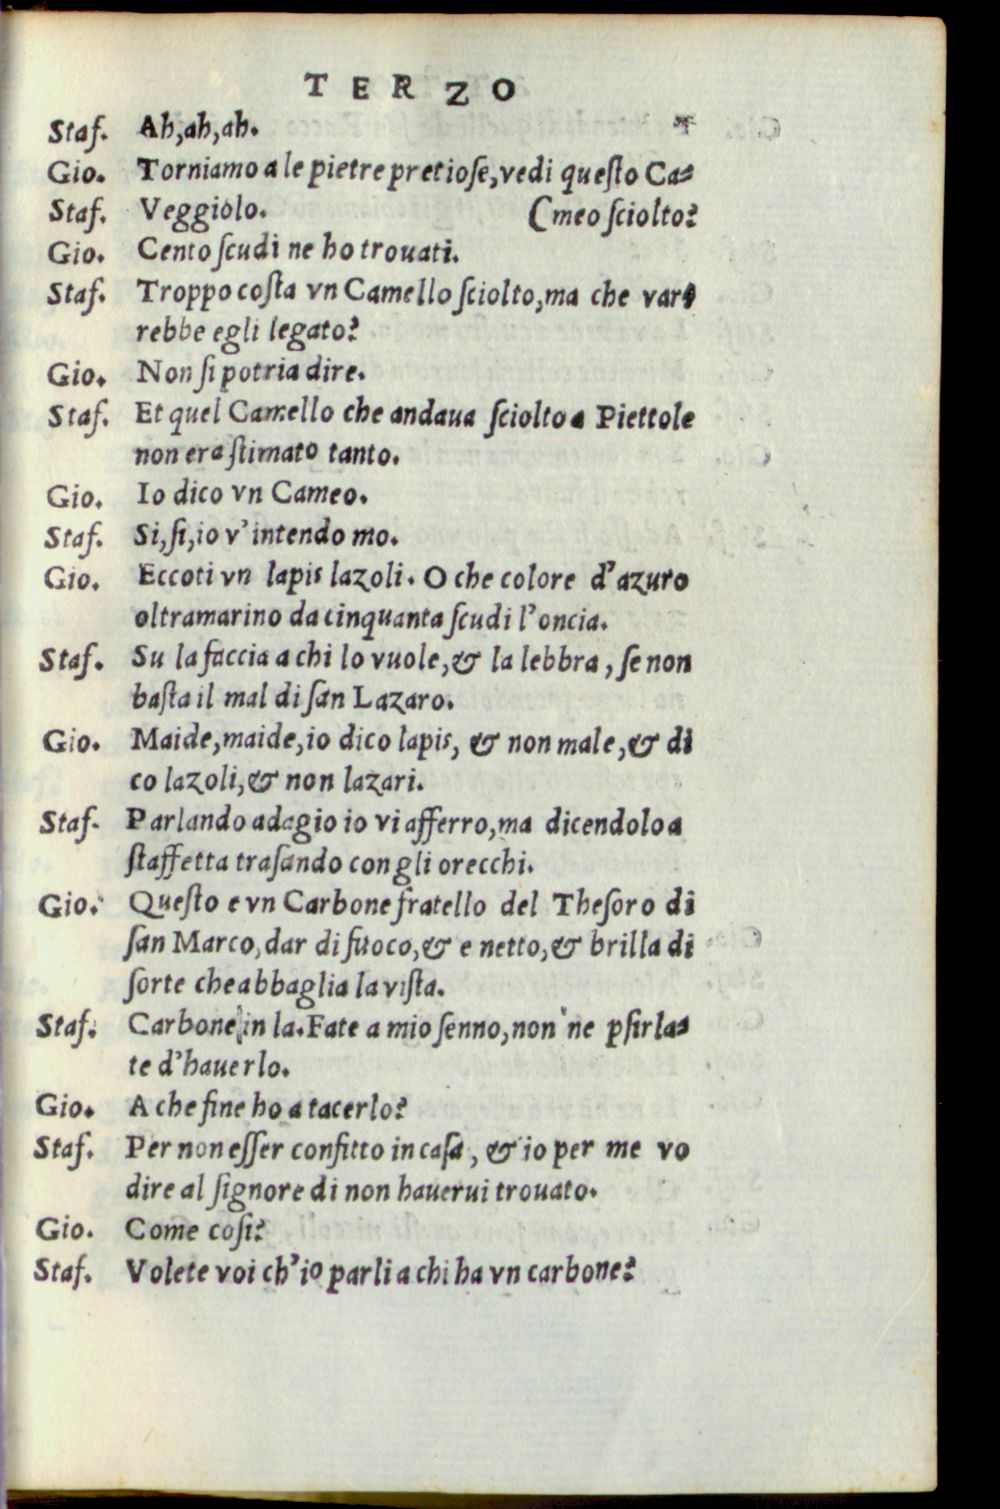 TERZO
Staf. Ah, ah, ah.
Gio. Torniamo a le pietre pretiose, vedi questo Ca-
Staf. Veggiolo. (meo sciolto?
Gio. Cento scudi ne ho trouati.
Staf. Troppo costa vn Camello sciolto, ma che var-
rebbe egli legato?
Gio. Non si potria dire.
Staf. Et quel Camello che andaua sciolto a Piettole
non era stimato tanto.
Gio. Io dico vn Cameo.
Staf. Si, si, io v'intendo mo.
Gio. Eccoti vn lapis lazoli. O che colore d'azuro
oltramarino da cinquanta scudi l'oncia.
Staf. Su la faccia a chi lo vuole, & la lebbra, se non
basta il mal di san Lazaro.
Gio. Maide, maide, io dico lapis, & non male, & di
co lazoli, & non lazari.
Staf. Parlando adagio io vi afferro, ma dicendolo a
staffetta trasando con gli orecchi.
Gio. Questo e vn Carbone fratello del Thesoro di
san Marco, dar di fuoco, & e netto, & brilla di
sorte che abbaglia la vista.
Staf. Carbone in la. Fate a mio senno, non ne psirla-
te d'hauerlo.
Gio. A che fine ho a tacerlo?
Staf. Per non esser confitto in casa, & io per me vo
dire al signore di non hauerui trouato.
Gio. Come cosi?
Staf. Volete voi ch'io parli a chi ha vn carbone?